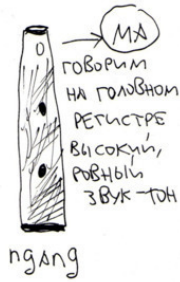 МА
ГОВОРИМ
НА ГОЛОВНОМ
РЕГИСТРЕ
ВЫСОКИЙ,
РОВНЫЙ
ЗВУК-ТОН
ngang